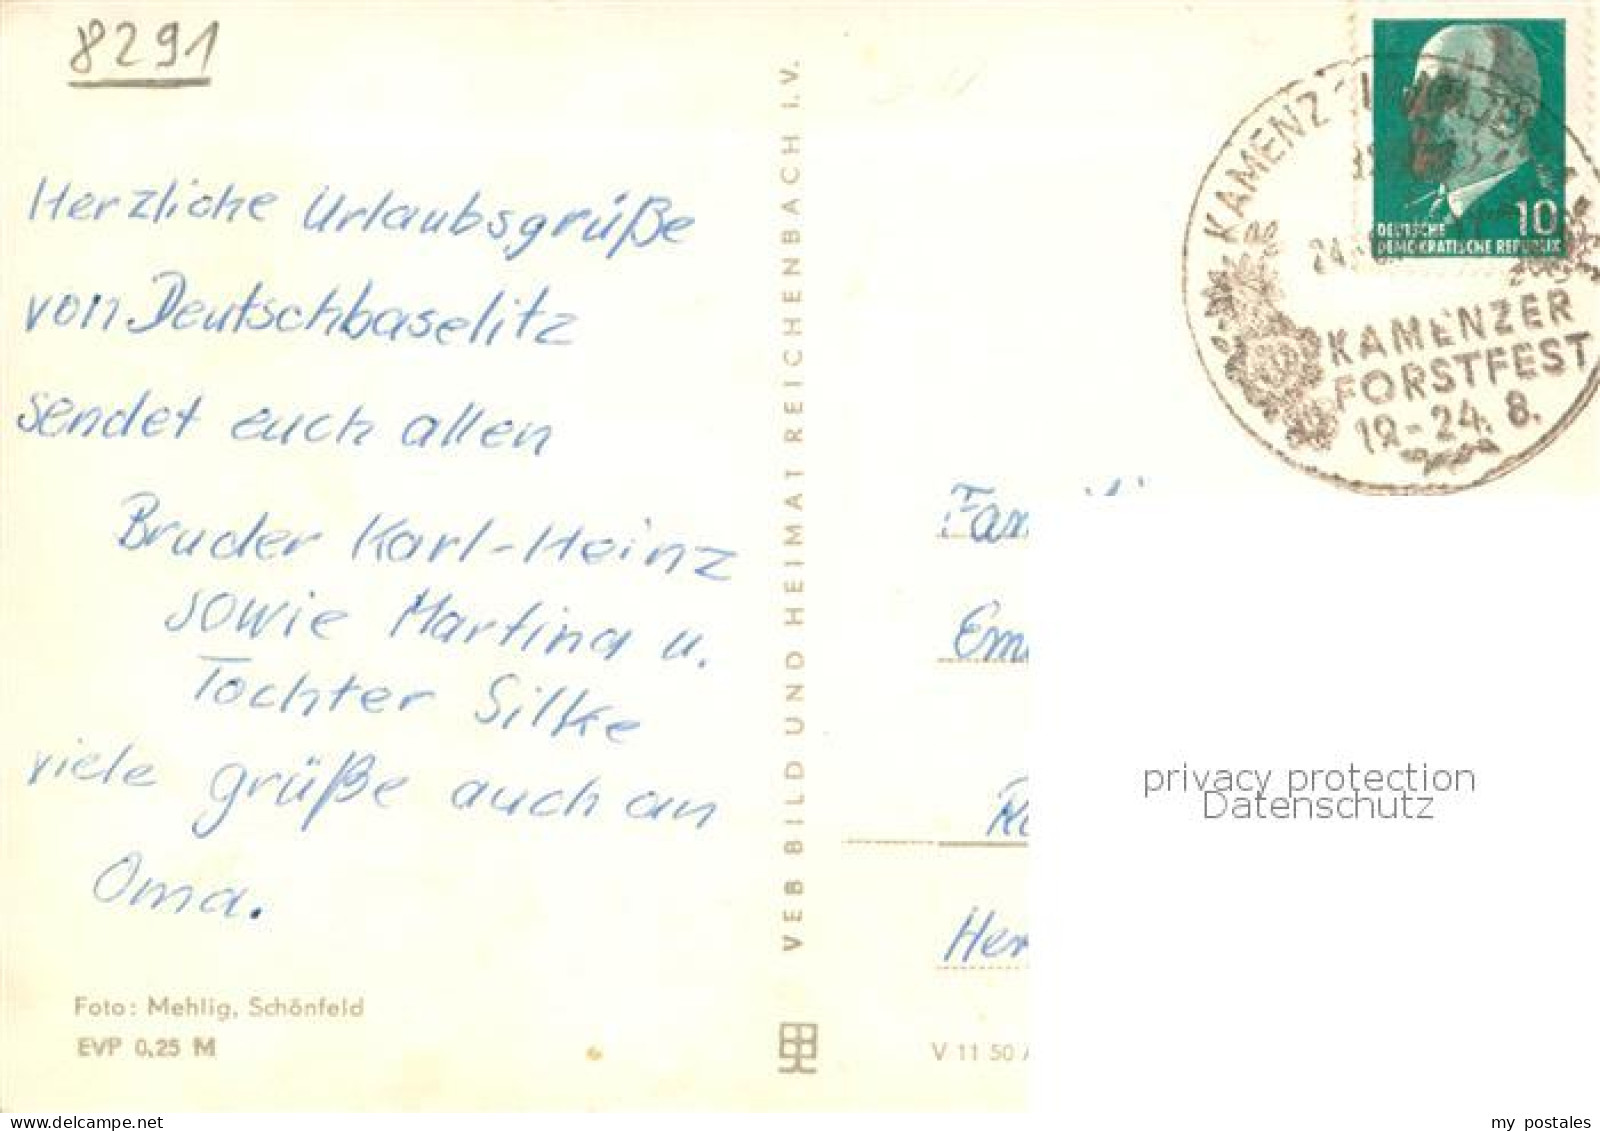 8291
Herzliche Urlaubsgrüße
von Deutschbaselitz
sendet euch allen
Bruder Karl-Heinz
sowie Martina u.
Tochter Silke
viele grüße auch an
Oma.
Foto: Mehlig, Schönfeld
EVP 0,25 M
VEB BILD UND HEIMAT REICHENBACH I.V.
10
DEUTSCHE
DEMOKRATISCHE REPUBLIK
KAMENZ
KAMENZER
FORSTFEST
19-24. 8.
V 11 50
privacy protection
Datenschutz
delcampe.net
my_postales